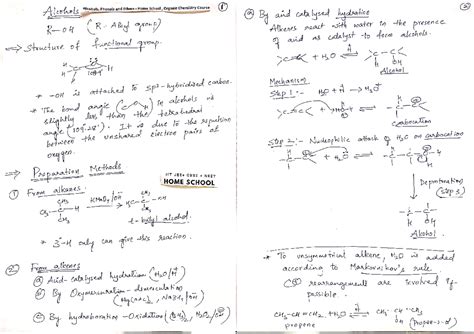 Alcohols
Alcohols, Phenols and Ethers - Home School, Organic Chemistry Course
①
R-OH (R- Alkyl group)
⇒ Structure of functional group.
* -OH is attached to sp³-hybridized carbon.
* The bond angle (C-O-H) in alcohols is
slightly less than the tetrahedral
angle (109°28'). It is due to the repulsion
between the unshared electron pairs of
oxygen.
IIT JEE • CBSE • NEET
HOME SCHOOL
⇒ Preparation Methods
① From alkanes:
CH₃ CH₃
CH₃-C-H KMnO₄ / OH → H₃C-C-OH
CH₃ CH₃
t-butyl alcohol.
* 3°-H only can give this reaction.
② From alkenes
a) Acid-catalysed hydration (H₂O/H⁺)
b) By Oxymercuration-demercuration
(Hg(OAc)₂, NaBH₄/OH)
c) By hydroboration-Oxidation
②
a) By acid catalysed hydration
Alkenes react with water in the presence
of acid as catalyst to form alcohols.
>C=C< + H₂O ⇌ >C-C<
H OH
Alcohol
Mechanism
Step 1:- H₂O + H⁺ → H₃O⁺
>C=C< +
carbocation
Step 2:- Nucleophilic attack of H₂O on carbocation
+ H₂O ⇌
Deprotonation
(Step 3)
H OH
Alcohol.
* To unsymmetrical alkene, H₂O is added
according to Markovnikov's rule.
C⊕ rearrangement are involved if
possible.
CH₃-CH=CH₂ + H₂O ⇌ CH₃-CH-CH₃
OH
propene (Propan-2-ol)